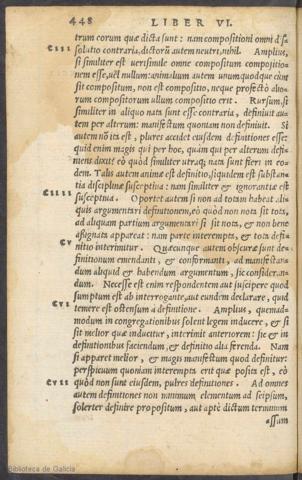 448 LIBER VI.
trum corum quæ dicta sunt: nam compositioni omni dissolutio
C iii solutio contraria, dictorũ autem neutri, nihil. Amplius,
si similiter est verisimile omne compositum compositionem
nem esse, vel nullum: animalium autem unumquodque cùm
sit compositum, non est compositio, neque profectò aliorum
rum compositorum ullum compositio erit. Rursum, si
similiter in aliquo nata sunt esse contraria, definiuit autem
tem per alterum: manifestum quoniam non definiuit. Si
autem nõ ita est, plures accidet eiusdem definitiones esse:
quid enim magis qui per hoc, quàm qui per alterum definiuit
mens dixit? eò quòd similiter utraq; nata sunt fieri in eodem.
dem. Talis autem animæ est definitio, siquidem est substantia
tia disciplinæ susceptiua: nam similiter & ignorantiæ est
C iiii susceptiua. Oportet autem si non ad totam habeat aliquis
quis argumentari definitionem, eò quòd non nota sit tota,
ad aliquam partium argumentari si sit nota, & non bene
assignata appareat: nam parte interempta, & tota definitio
C v nitio interimitur. Quæcunque autem obscuræ sunt definitionum
finitionum emendanti, & conformanti, ad manifestandum
dum aliquid & habendum argumentum, sic considerandum.
dum. Necesse est enim respondentem aut suscipere quod
sumptum est ab interrogante, aut eundem declarare, quid
C vi temere est ostensum à definitione. Amplius, quemadmodum
modum in congregationibus solent legem inducere, & si
sit melior quæ inducitur, interimit anteriorem: sic & in
definitionibus faciendum, & definitio alia ferenda. Nam
si apparet melior, & magis manifestum quod definitur:
perspicuum quoniam interempta erit quæ posita est, eò
C vii quòd non sunt eiusdem, plures definitiones. Ad omnes
autem definitiones non minimum elementum ad seipsum,
solerter definire propositum, aut aptè dictum terminum
assum
Biblioteca de Galicia